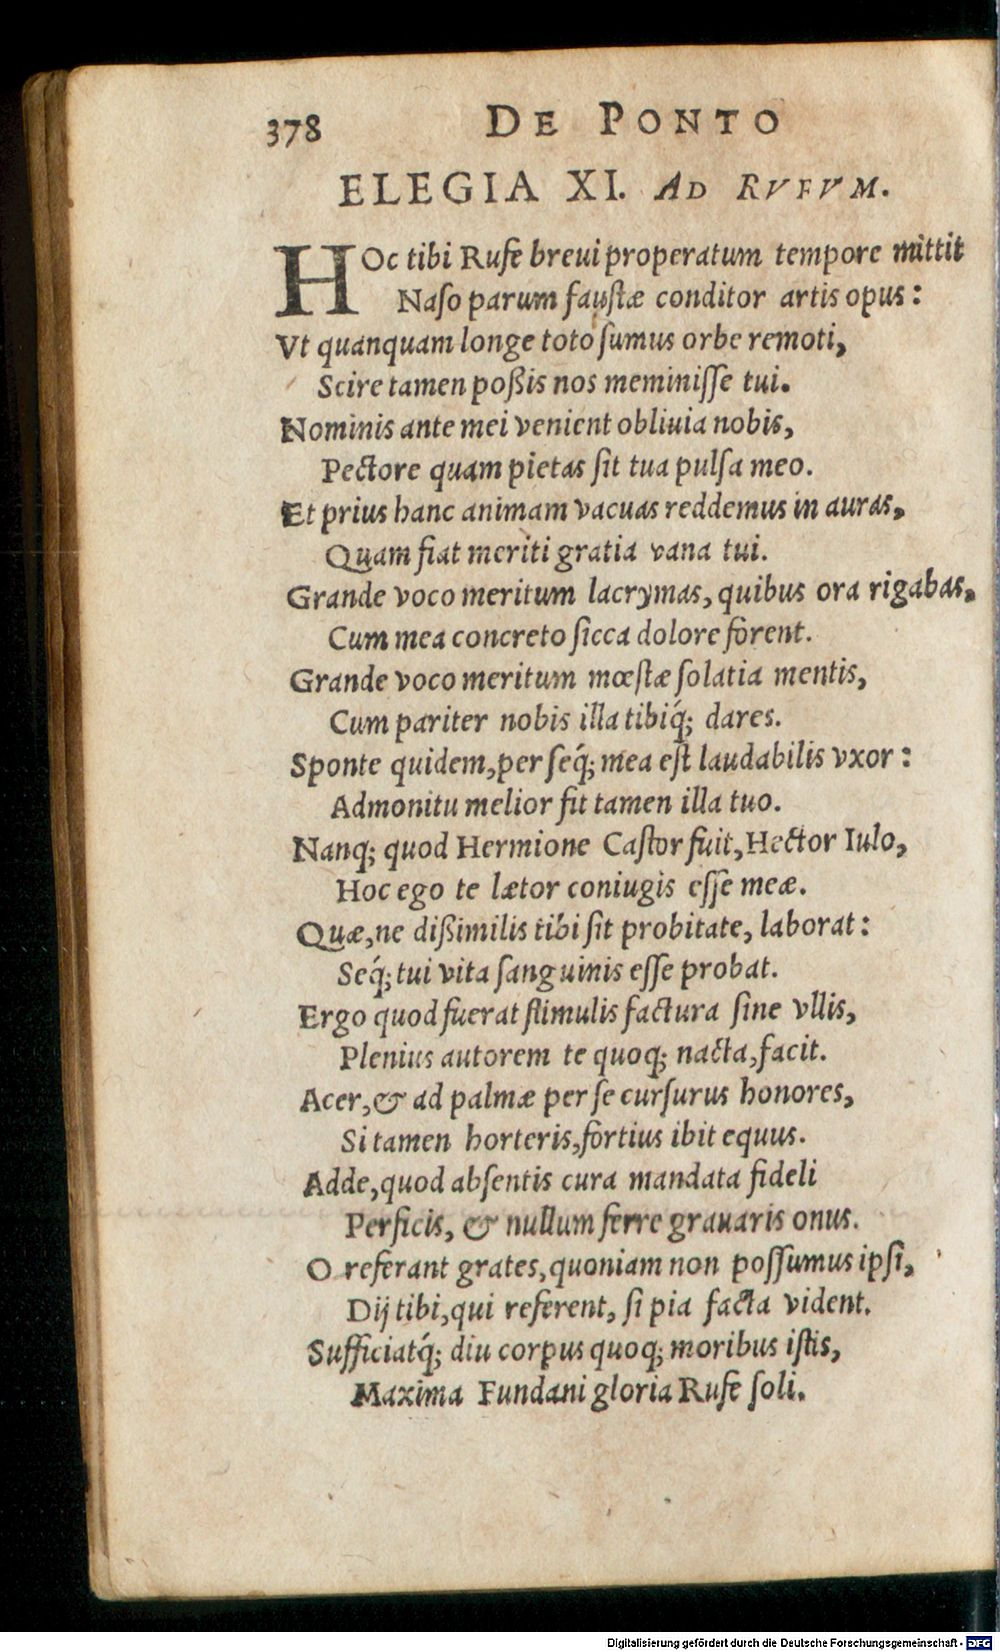 378 DE PONTO
ELEGIA XI. AD RVFVM.
HOc tibi Rufe breui properatum tempore mittit
Naſo parum fauſtæ conditor artis opus:
Vt quanquam longe toto ſumus orbe remoti,
Scire tamen poßis nos meminiſſe tui.
Nominis ante mei venient obliuia nobis,
Pectore quam pietas ſit tua pulſa meo.
Et prius hanc animam vacuas reddemus in auras,
Quam fiat meriti gratia vana tui.
Grande voco meritum lacrymas, quibus ora rigabas,
Cum mea concreto ſicca dolore forent.
Grande voco meritum mœſtæ ſolatia mentis,
Cum pariter nobis illa tibiq́; dares.
Sponte quidem, per ſeq́; mea eſt laudabilis vxor:
Admonitu melior fit tamen illa tuo.
Nanq; quod Hermione Caſtor fuit, Hector Iulo,
Hoc ego te lætor coniugis eſſe meæ.
Quæ, ne dißimilis tibi ſit probitate, laborat:
Seq́; tui vita ſanguinis eſſe probat.
Ergo quod fuerat ſtimulis factura ſine vllis,
Plenius autorem te quoq; nacta, facit.
Acer, & ad palmæ per ſe curſurus honores,
Si tamen horteris, fortius ibit equus.
Adde, quod abſentis cura mandata fideli
Perficis, & nullum ferre grauaris onus.
O referant grates, quoniam non poſſumus ipſi,
Dij tibi, qui referent, ſi pia facta vident.
Sufficiatq́; diu corpus quoq; moribus iſtis,
Maxima Fundani gloria Rufe ſoli.
Digitalisierung gefördert durch die Deutsche Forschungsgemeinschaft - DFG